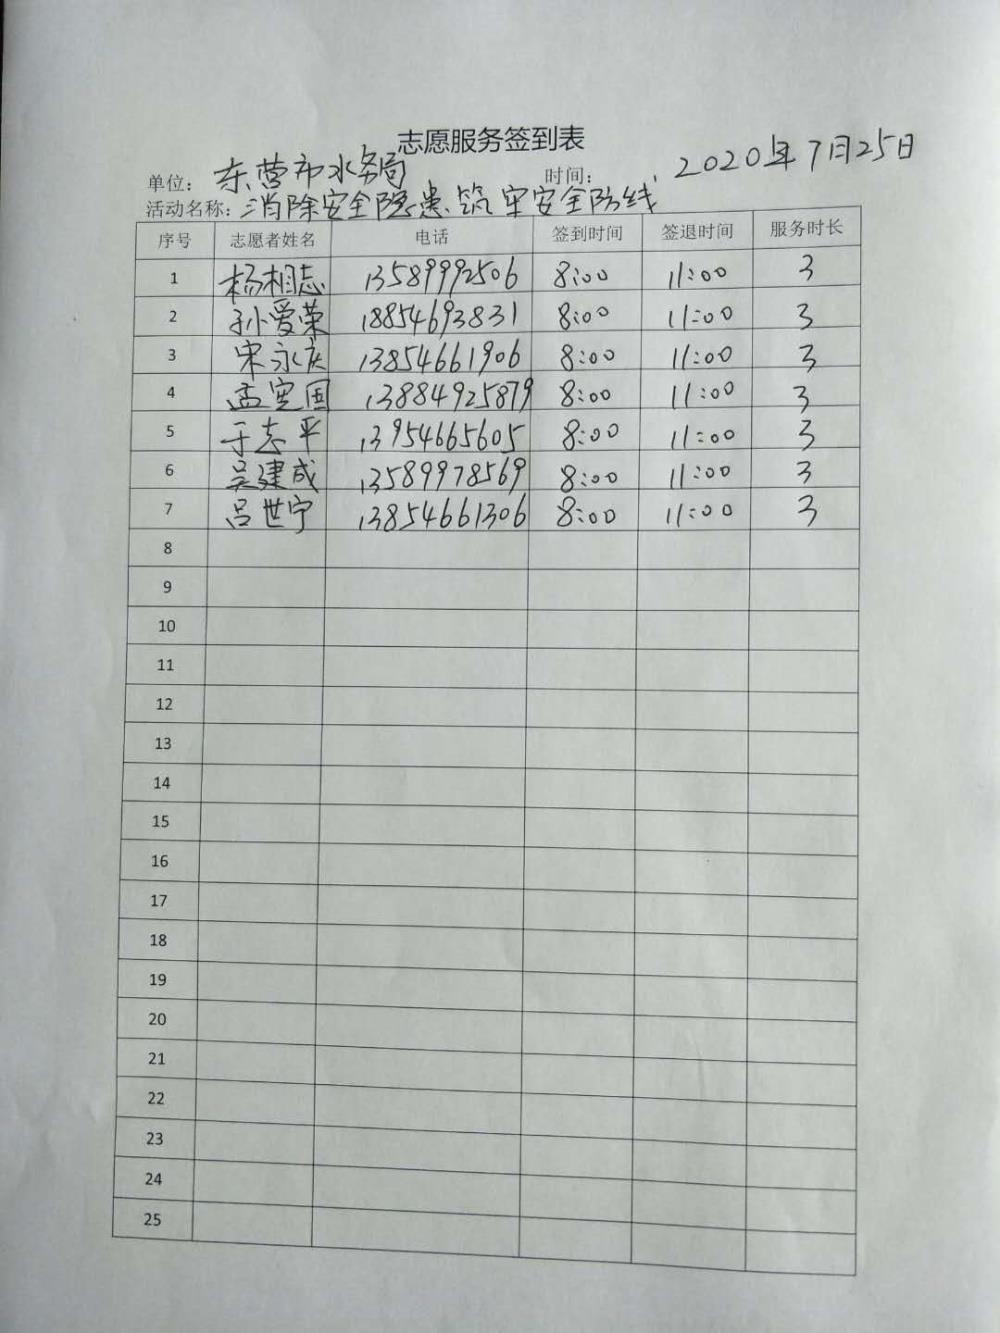 志愿服务签到表
单位： 东营市水务局 时间： 2020年7月25日
活动名称：消除安全隐患 筑牢安全防线
序号 志愿者姓名 电话 签到时间 签退时间 服务时长
1 杨相志 13589992506 8:00 11:00 3
2 孙爱荣 18854693831 8:00 11:00 3
3 宋永庆 13854661906 8:00 11:00 3
4 孟宪国 13884925879 8:00 11:00 3
5 于志平 13954665605 8:00 11:00 3
6 吴建成 13589978569 8:00 11:00 3
7 吕世宁 13854661306 8:00 11:00 3
8
9
10
11
12
13
14
15
16
17
18
19
20
21
22
23
24
25